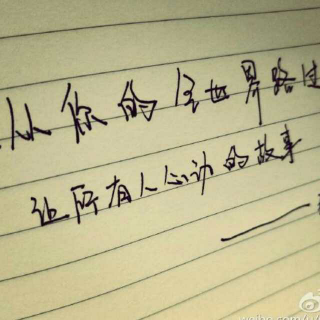 从你的全世界路过
让所有人心动的故事